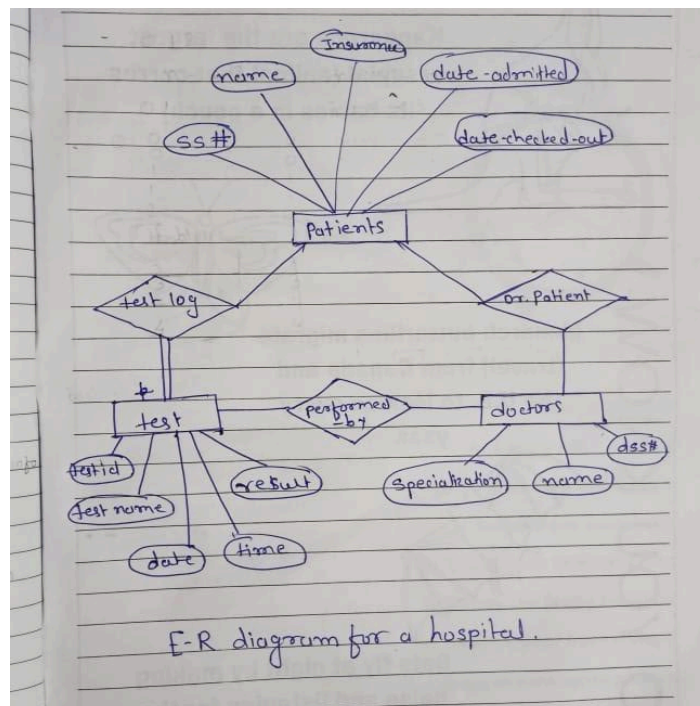 Insurance
name
date-admitted
ss#
date-checked-out
Patients
test log
Dr. Patient
test
performed
-by
doctors
testid
test name
date
time
result
specialization
name
dss#
E-R diagram for a hospital.